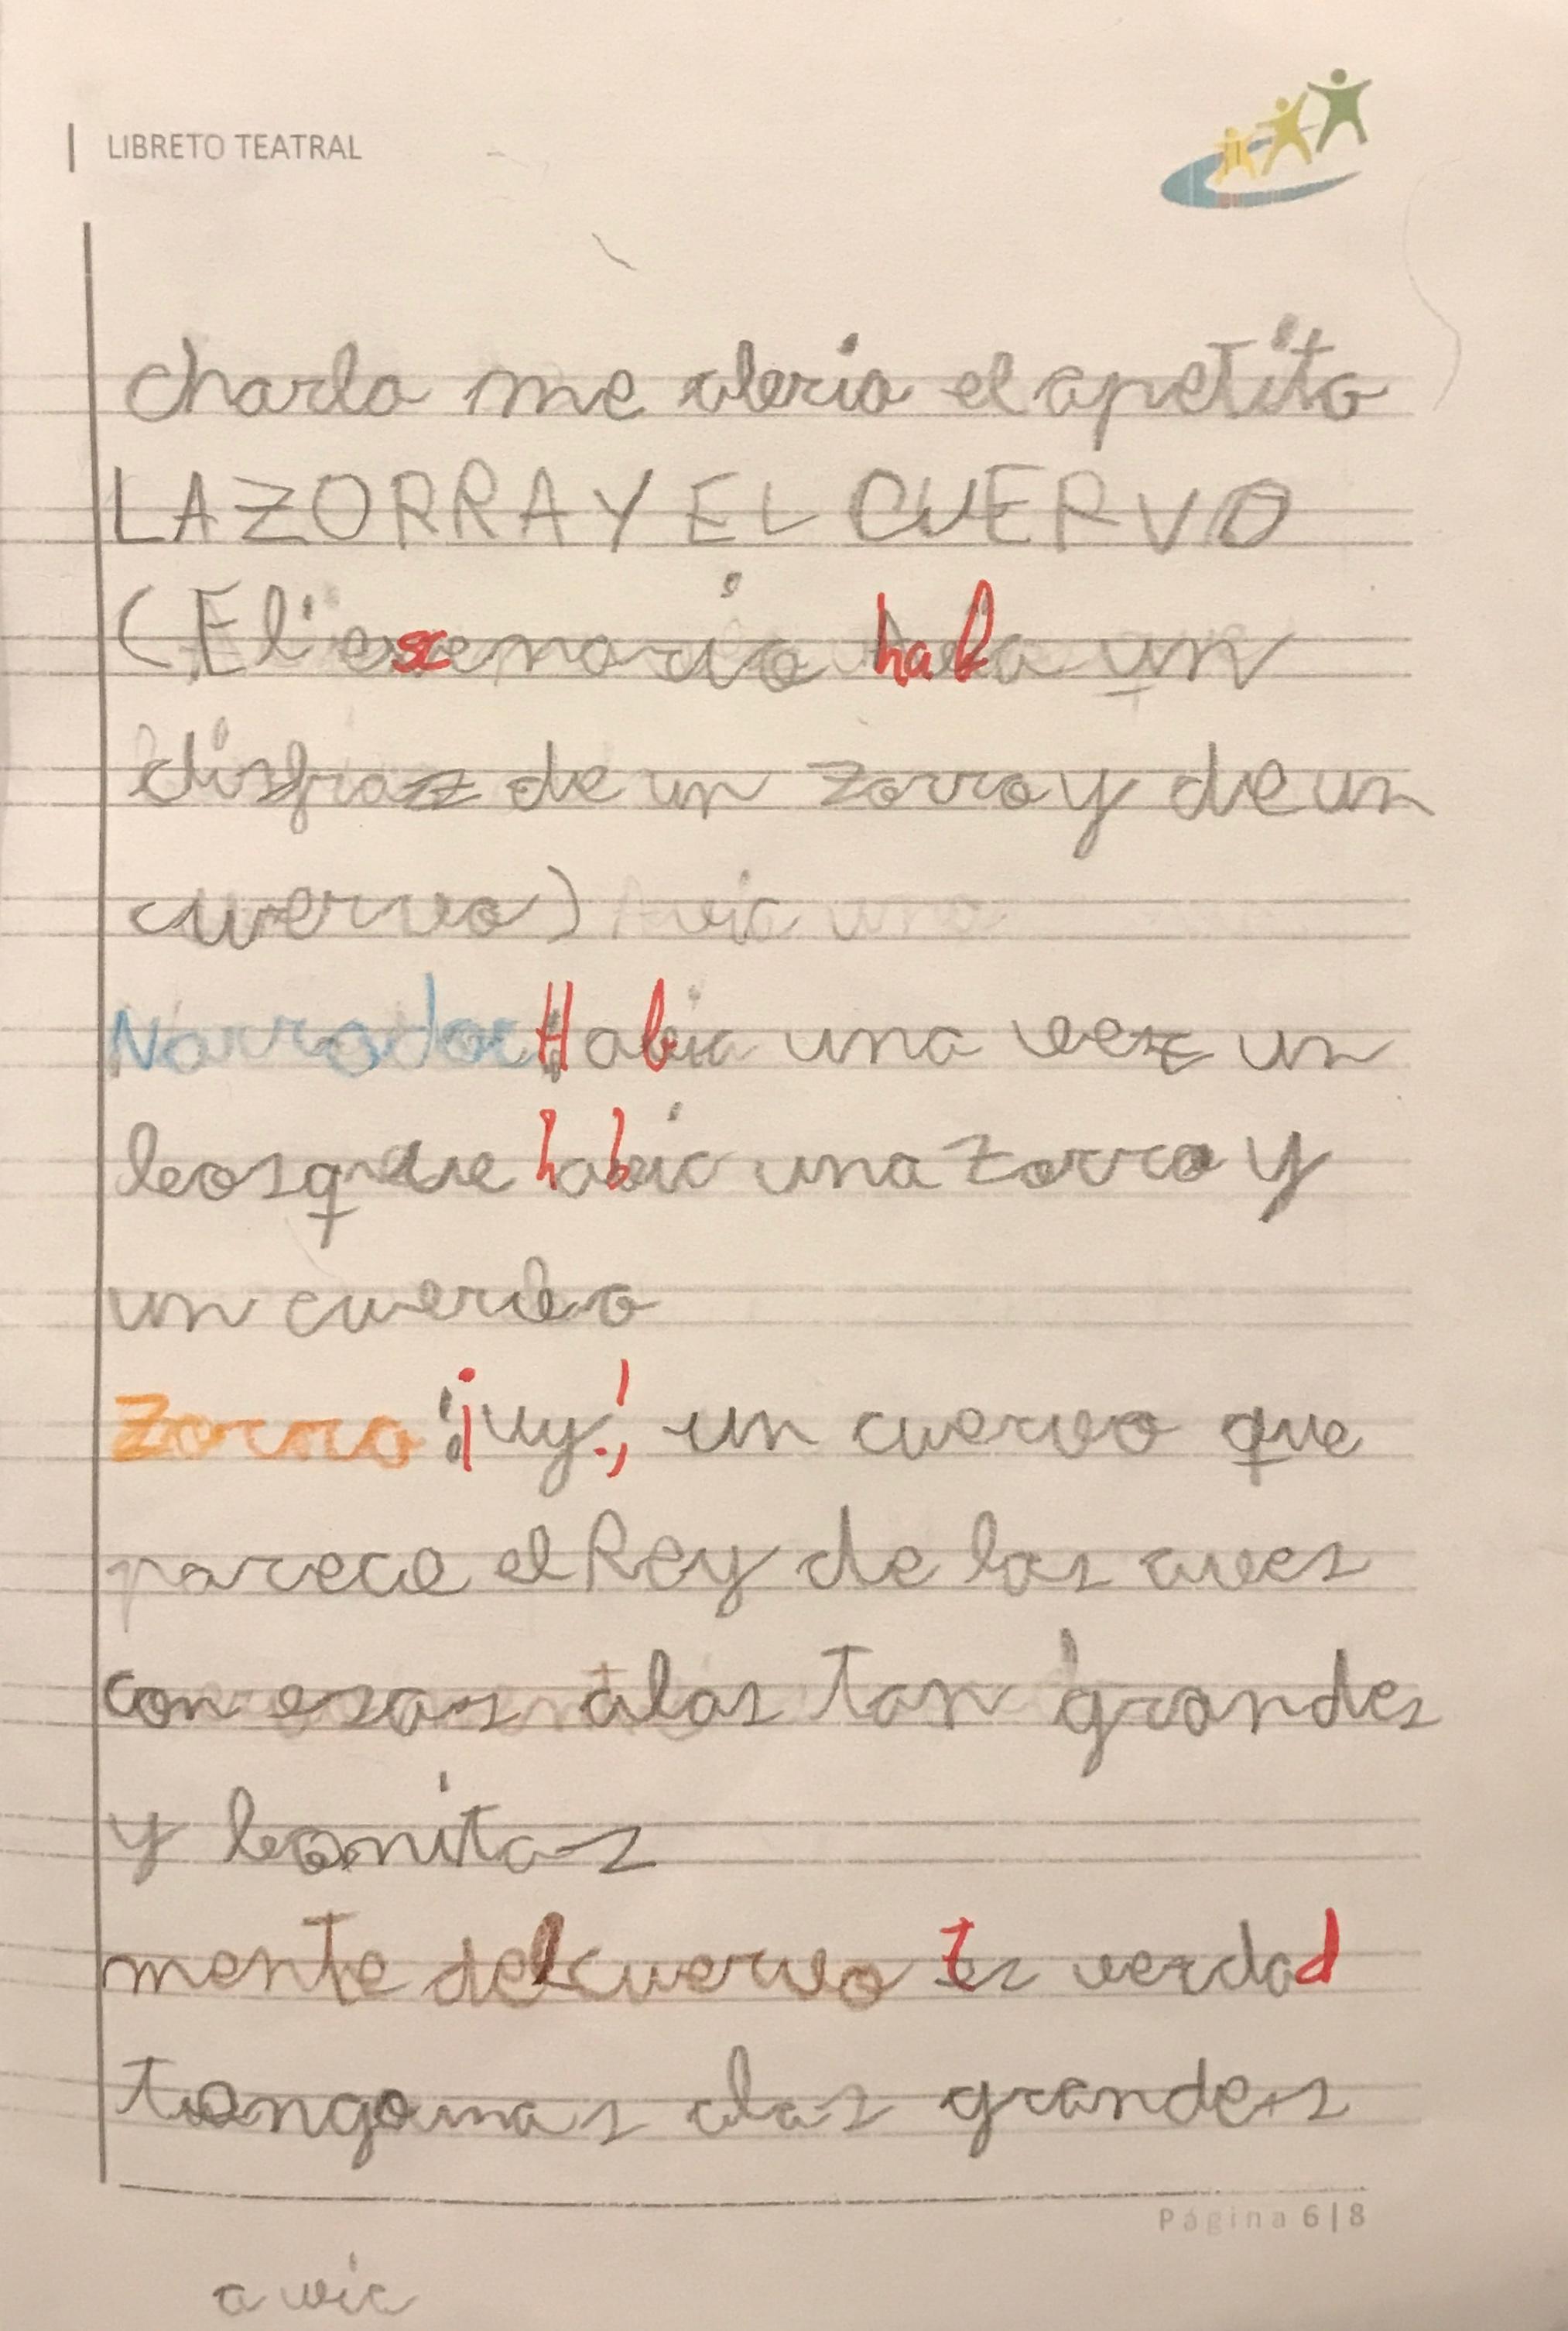 LIBRETO TEATRAL
charla me abria el apetito
LA ZORRA Y EL CUERVO
(El escenario había un
disfraz de un zorro y de un
cuervo) Avia una
Narrador: Había una vez un
bosque había una zorra y
un cuerbo
Zorra: ¡uy! un cuervo que
parece el Rey de las aves
con esas alas tan grandes
y bonitas
mente del cuervo Es verdad
tengo unas alas grandes
Página 6|8
avia